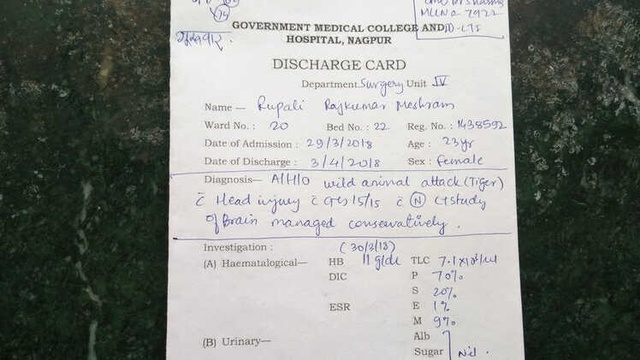 MLC No 7922
GOVERNMENT MEDICAL COLLEGE AND
HOSPITAL, NAGPUR
गुरुवार
DISCHARGE CARD
Department Surgery Unit IV
Name – Rupali Rajkumar Meshram
Ward No. : 20 Bed No. : 22 Reg. No. : 1438592
Date of Admission : 29/3/2018 Age : 23yr
Date of Discharge : 3/4/2018 Sex : female
Diagnosis— A/H/O wild animal attack (Tiger)
c̄ Head injury c̄ GCS 15/15 c̄ (N) CT study
of Brain managed conservatively.
Investigation : (30/3/18)
(A) Haematalogical— HB 11 g/dl TLC
DIC P 70%
S 20%
ESR E 1%
M 9%
(B) Urinary— Alb
Sugar Nil